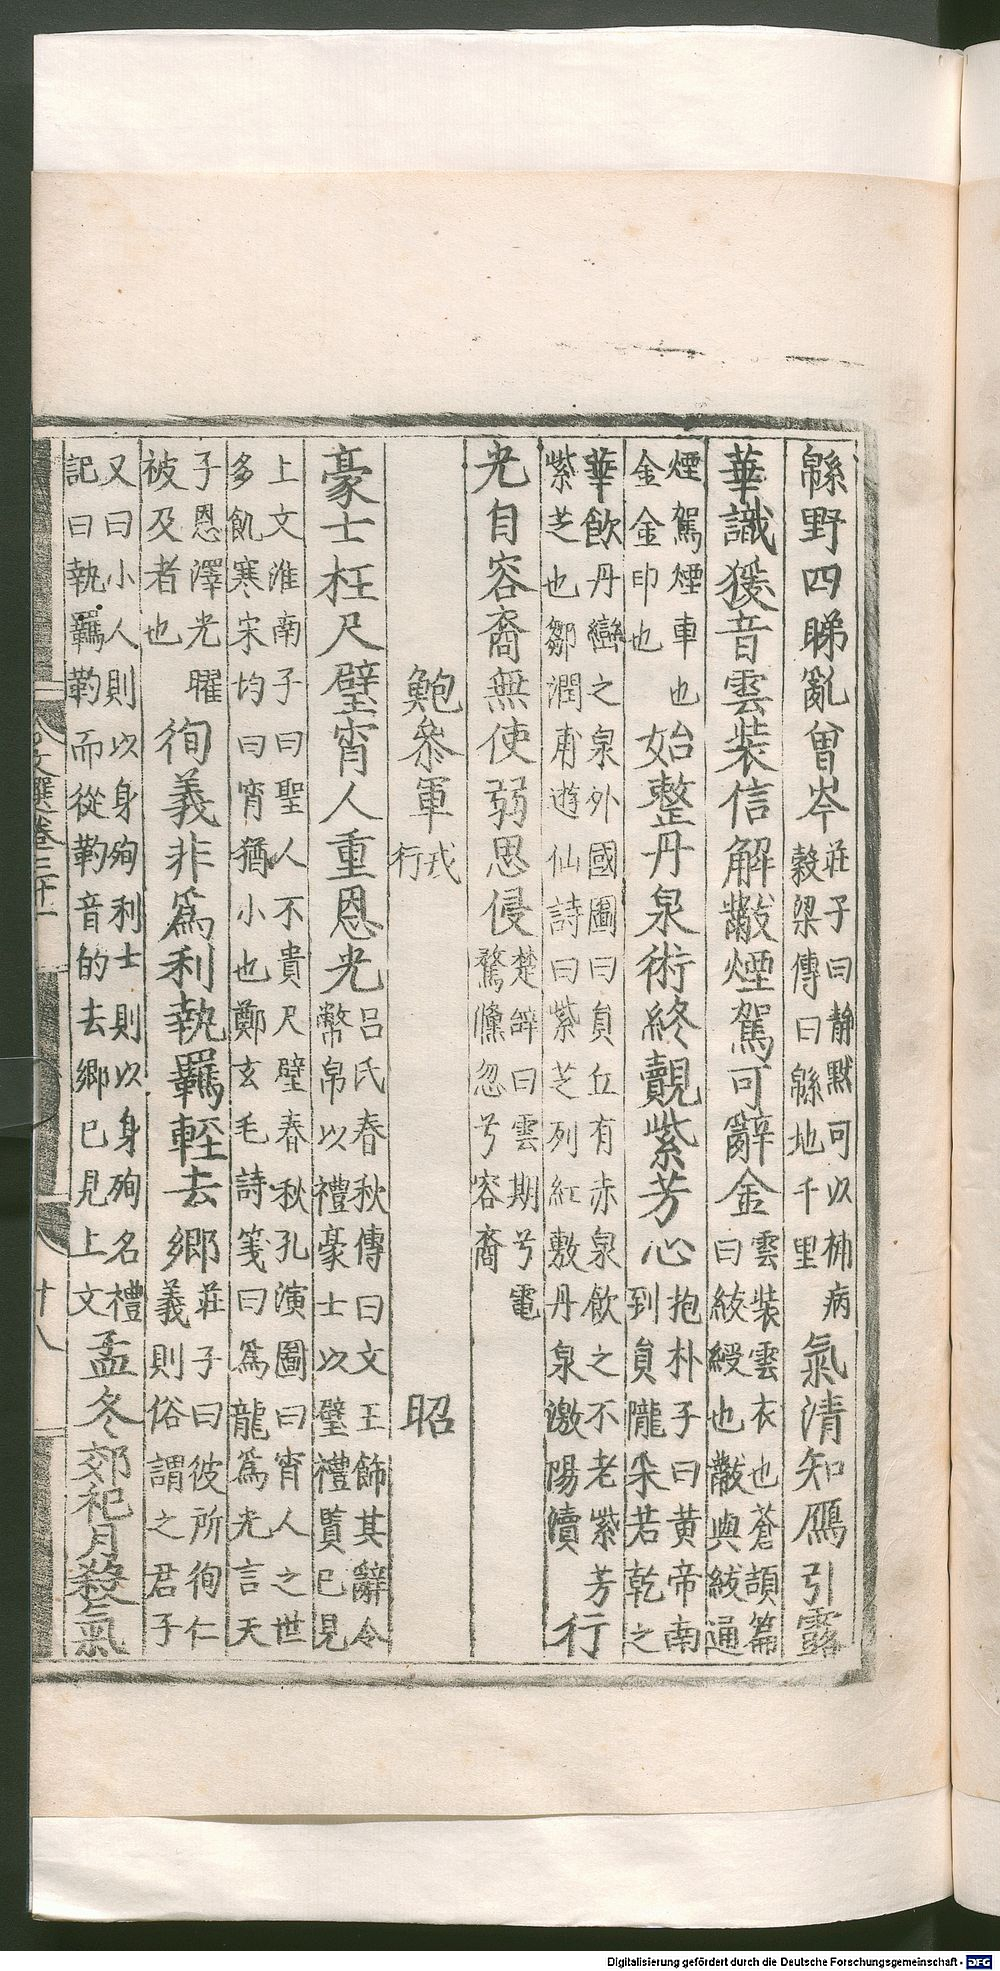 緜野四睇亂曾岑莊子曰静默可以補病榖梁傳曰緜地千里氣清知鴈引露
華識猨音雲裝信解黻煙駕可辭金雲裝雲衣也蒼頡篇曰紱綬也黻與紱通
煙駕煙車也金金印也始整丹泉術終覿紫芳心抱朴子曰黄帝南到員隴采若乾之
華飲丹巒之泉外國圖曰員丘有赤泉飲之不老紫芳紫芝也鄒潤甫遊仙詩曰紫芝列紅敷丹泉激陽瀆行
光自容裔無使弱思侵楚辭曰雲期兮電騖儵忽兮容裔
鮑叅軍戎行 昭
豪士枉尺璧宵人重恩光吕氏春秋傳曰文王飾其辭令幣帛以禮豪士以璧禮賢已見
上文淮南子曰聖人不貴尺璧春秋孔演圖曰宵人之世多飢寒宋均曰宵猶小也鄭玄毛詩箋曰爲龍爲光言天
子恩澤光曜被及者也徇義非爲利執羈輕去鄉莊子曰彼所徇仁義則俗謂之君子
又曰小人則以身殉利士則以身殉名禮記曰執羈靮而從靮音的去鄉已見上文孟冬郊祀月殺氣
文選卷三十一 十八
Digitalisierung gefördert durch die Deutsche Forschungsgemeinschaft - DFG